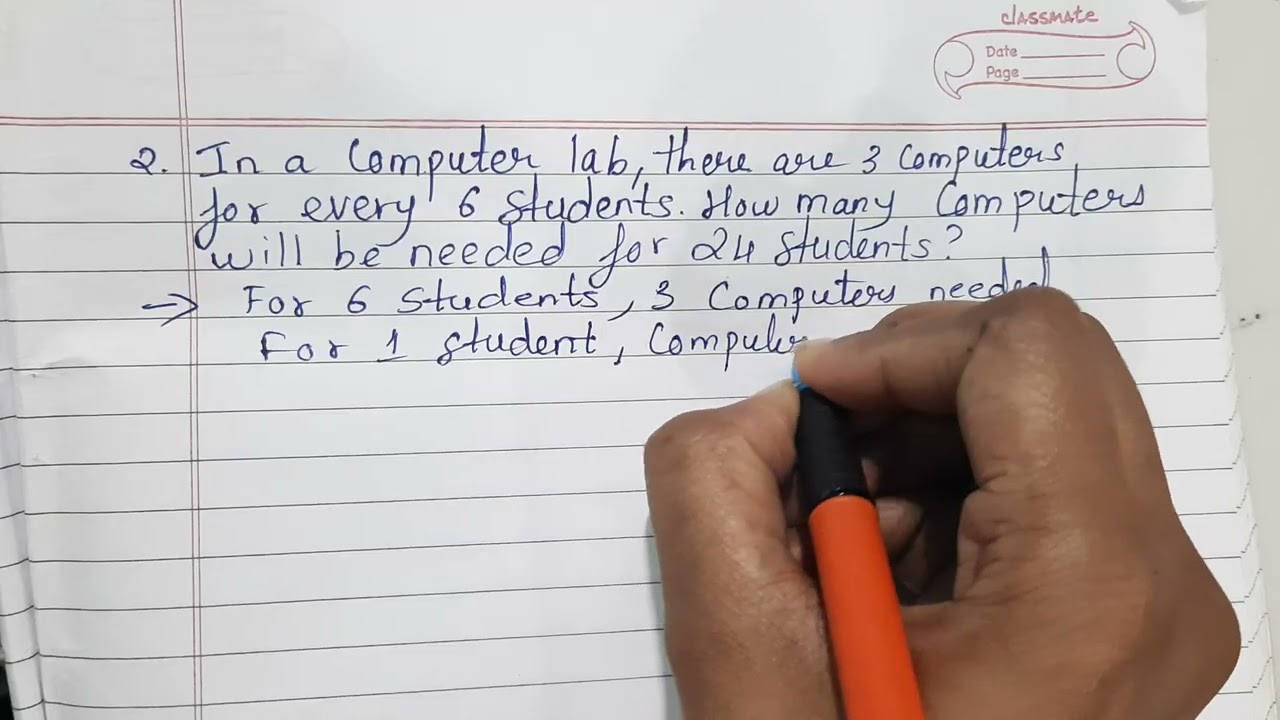 classmate
Date
Page
2. In a Computer lab, there are 3 Computers
for every 6 students. How many Computers
will be needed for 24 students?
→ For 6 Students, 3 Computers needed
For 1 student, Computer